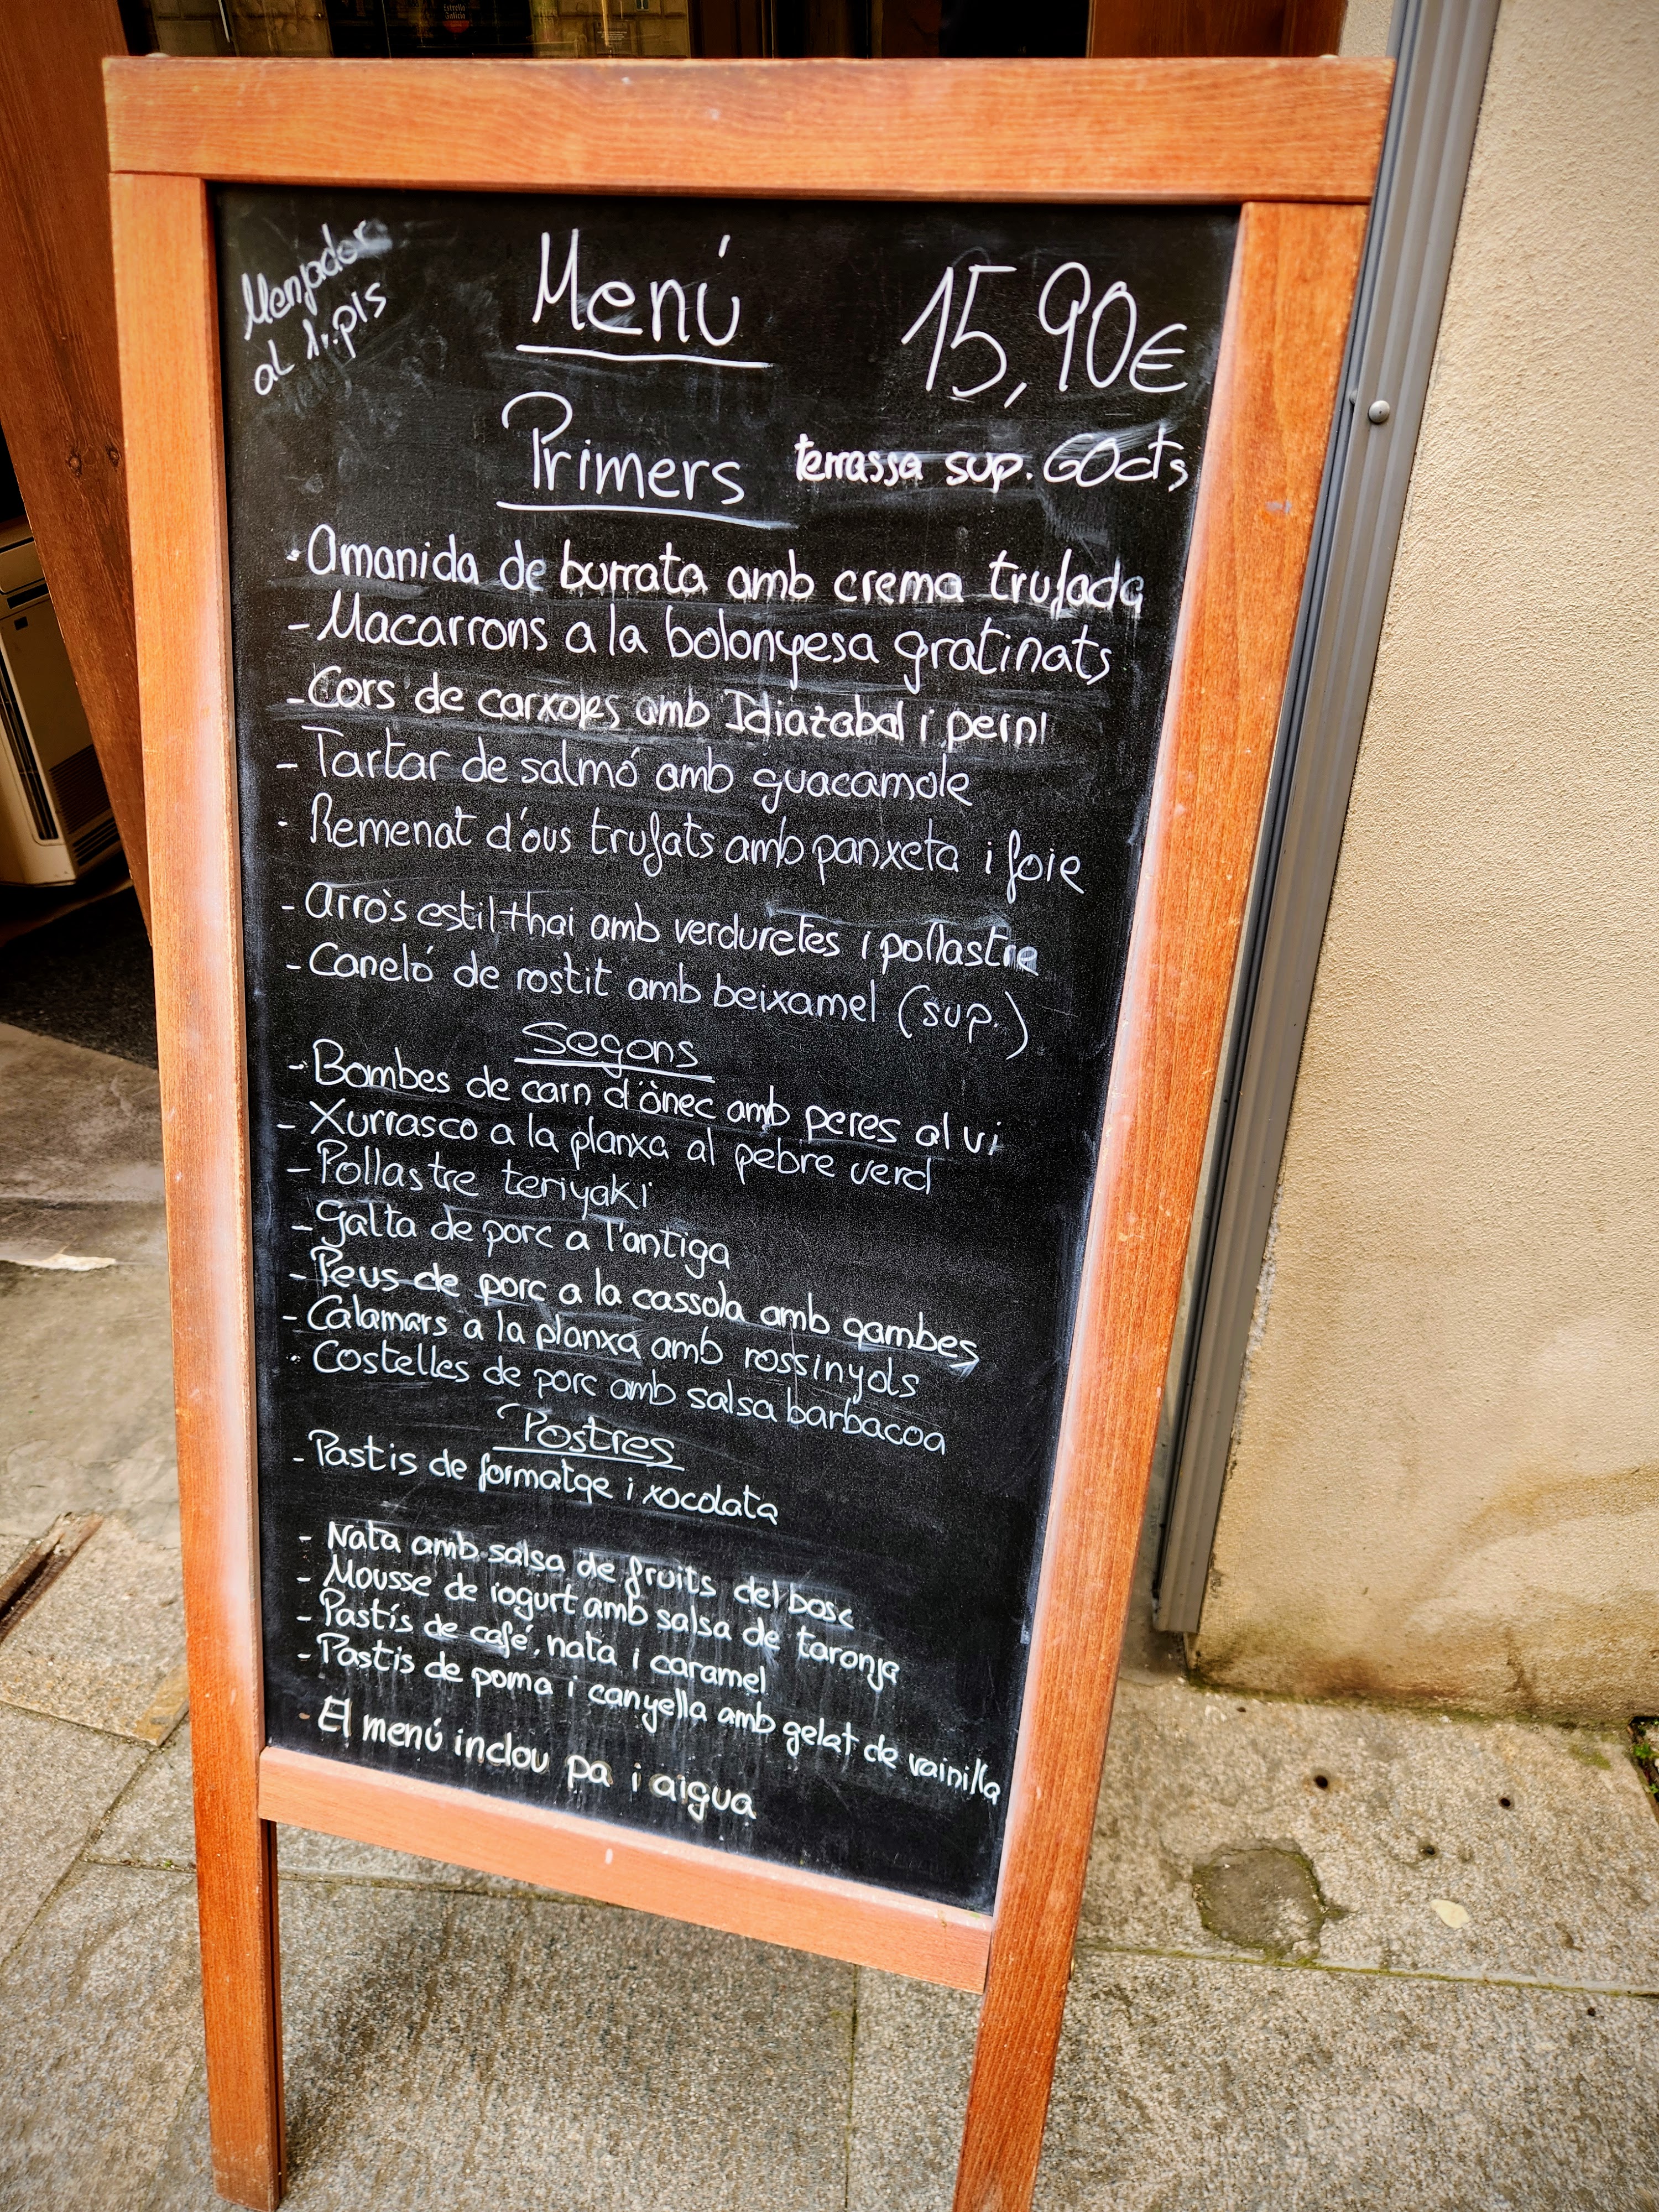 Estrella Galicia
Menjador
al 1. pis
Menú
15,90€
Primers
terrassa sup. 60cts
- Amanida de burrata amb crema trufada
- Macarrons a la bolonyesa gratinats
- Cors de carxofes amb Idiazabal i pernil
- Tartar de salmó amb guacamole
- Remenat d'ous trufats amb panxeta i foie
- Arròs estil thai amb verduretes i pollastre
- Caneló de rostit amb beixamel (sup.)
Segons
- Bombes de carn d'ànec amb peres al vi
- Xurrasco a la planxa al pebre verd
- Pollastre teriyaki
- Galta de porc a l'antiga
- Peus de porc a la cassola amb gambes
- Calamars a la planxa amb rossinyols
- Costelles de porc amb salsa barbacoa
Postres
- Pastis de formatge i xocolata
- Nata amb salsa de fruits del bosc
- Mousse de iogurt amb salsa de taronja
- Pastís de café, nata i caramel
- Pastis de poma i canyella amb gelat de vainilla
- El menú inclou pa i aigua